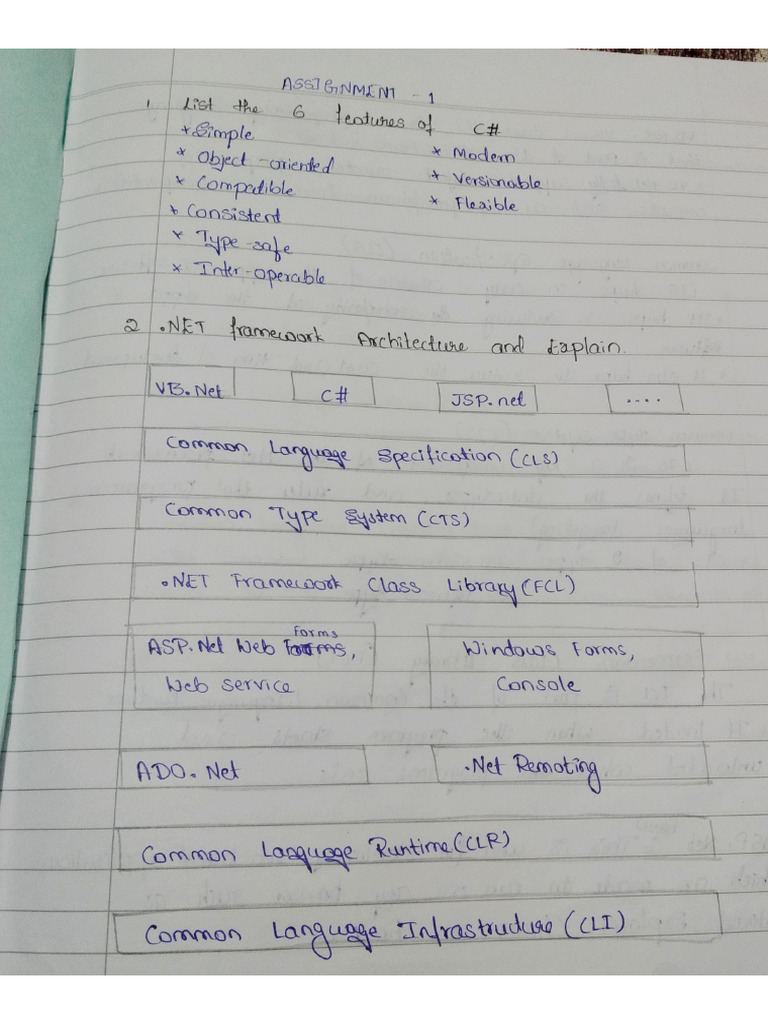 ASSIGNMENT - 1
1 List the 6 features of C#
* Simple
* Object-oriented
* Compatible
* Consistent
* Type-safe
* Inter-operable
* Modern
* Versionable
* Flexible
2 .NET framework Architecture and Explain.
VB.Net C# JSP.net ....
Common Language Specification (CLS)
Common Type System (CTS)
.NET Framework Class Library (FCL)
Forms
ASP.Net Web Forms,
Web service
Windows Forms,
Console
ADO.Net
.Net Remoting
Common Language Runtime (CLR)
Common Language Infrastructure (CLI)